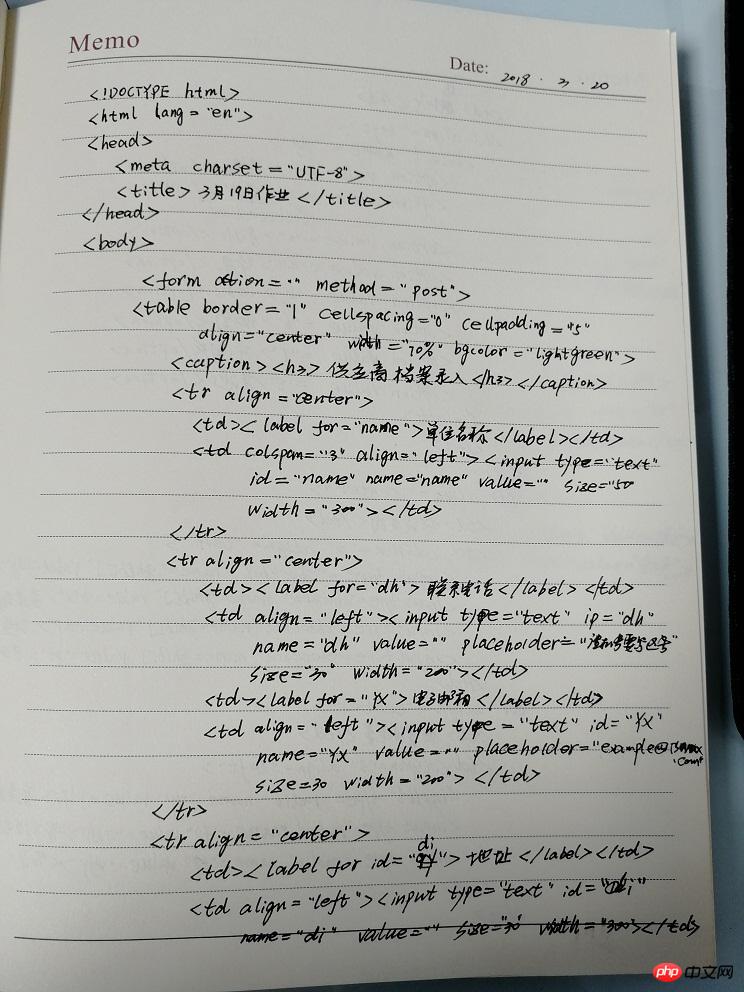 Memo
Date: 2018.3.20
<!DOCTYPE html>
<html lang="en">
<head>
<meta charset="UTF-8">
<title>3月19日作业</title>
</head>
<body>
<form action="" method="post">
<table border="1" cellspacing="0" cellpadding="5"
align="center" width="70%" bgcolor="lightgreen">
<caption><h3>供应商档案录入</h3></caption>
<tr align="center">
<td><label for="name">单位名称</label></td>
<td colspan="3" align="left"><input type="text"
id="name" name="name" value="" size="50
width="300"></td>
</tr>
<tr align="center">
<td><label for="dh">联系电话</label></td>
<td align="left"><input type="text" ip="dh"
name="dh" value="" placeholder="
size="30" width="200"></td>
<td><label for="yx">电子邮箱</label></td>
<td align="left"><input type="text" id="yx"
name="yx" value="" placeholder="example@
.com"
size=30 width="200"></td>
</tr>
<tr align="center">
<td><label for id="di">地址</label></td>
<td align="left"><input type="text" id="di"
name="di" value="" size="30" width="300"></td>
php 中文网